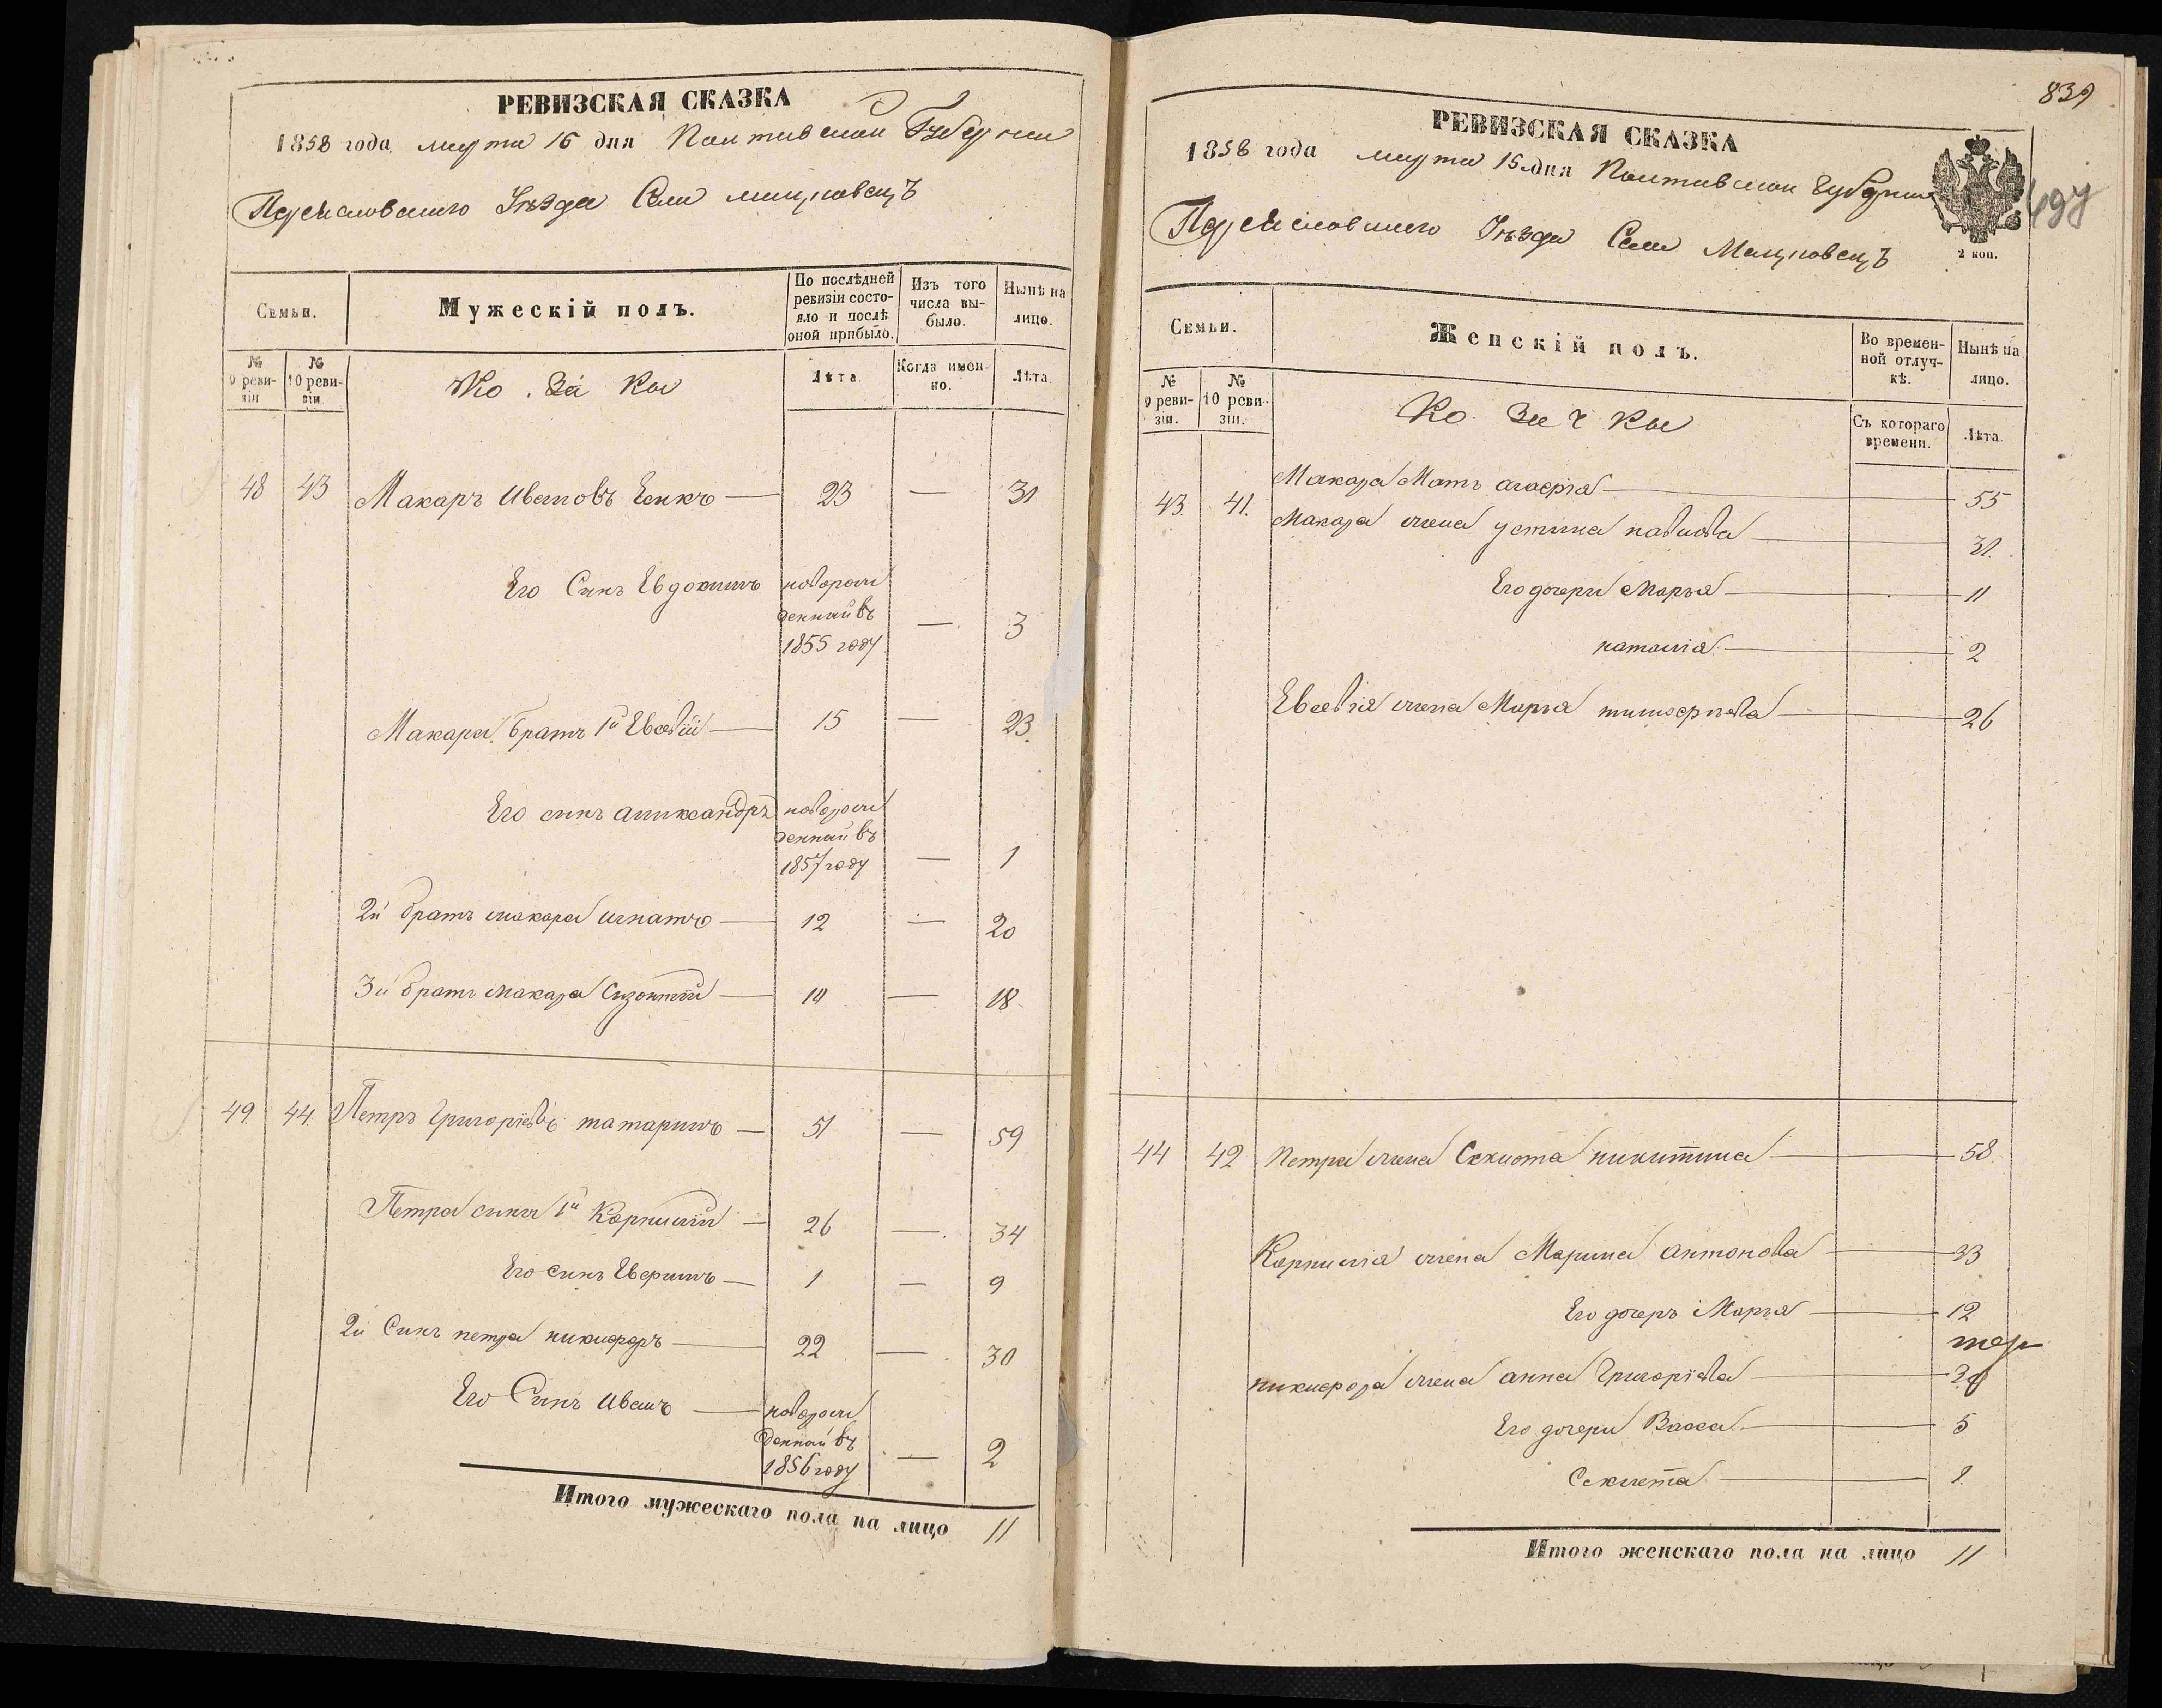 РЕВИЗСКАЯ СКАЗКА
1858 года марта 15 дня Полтавской Губернии
Переяславскаго Уѣзда Села Мацковецъ
Семьи.
Мужескій полъ.
По послѣдней ревизіи состояло и послѣ оной прибыло.
Изъ того числа выбыло.
Нынѣ на лицо.
№ 9 ревизіи
№ 10 ревизіи
Ко за ки
Лѣта.
Когда именно.
Лѣта.
48 43 Макаръ Ивановъ — 23 — 31
Его Синъ Евдокимъ новорож
денний въ — 3
1855 году
Макара братъ 1й Евсевій — 15 — 23.
Его синъ Александръ новорож
денний въ
1857 году — 1
2й братъ макара игнатъ — 12 — 20
3й братъ макара Созонтій — 10 — 18
49. 44. Петръ Григоріевъ татаринъ — 51 — 59
Петра синъ 1й Корнилій — 26 — 34
Его синъ Севериннъ — 1 — 9
2й Синъ петра никифоръ — 22 — 30
Его Синъ Иванъ — новорож
денний въ — 2
1856 году
Итого мужескаго пола на лицо 11
839
497
РЕВИЗСКАЯ СКАЗКА
1858 года марта 15 дня Полтавской Губернии
Переяславскаго Уѣзда Села Мацковецъ
2 коп.
Семьи.
Женскій полъ.
Во временной отлучкѣ.
Нынѣ на лицо.
№ 9 ревизіи.
№ 10 ревизіи.
Ко за ч ки
Съ котораго времени.
Лѣта.
43. 41. Макара Мать агафія — 55
Макара жена устина павлова — 31.
Его дочери Марья — 11
наталія — 2
Евсевія жена Марья тимофѣева — 26
44 42 Петра жена Секлета никитина — 58
Корнилія жена Марина антонова — 33
Его дочеръ Марья — 12
никифора жена анна Григоріева —
Его дочери Васса — 5
Секлета — 1
Итого женскаго пола на лицо 11